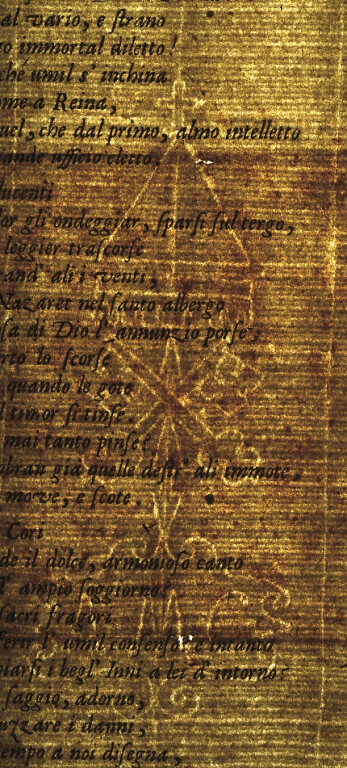 al vario, e ſtrano
immortal diletto!
ché umil s' inchina
ome a Reina,
uel, che dal primo, almo intelletto
rande ufficio eletto.
lucenti
or gli ondeggiar, ſparſi ſul tergo,
leggier traſcorſe
and' ali i venti,
Nazaret nel ſanto albergo
ſa di Dio l' annunzio porſe;
rto lo ſcorſe
quando le gote
l timor ſi tinſe.
mai tanto pinſe?
bran già quelle deſtr' ali immote,
move, e ſcote.
Cori
de il dolce, armonioſo canto
ampio ſoggiorno?
ſacri fragori
ferir l' umil conſenſo e incanto
uarſi i begl' Inni a lei d' intorno?
ſaggio, adorno,
uzzare i danni,
empo a noi diſegna,